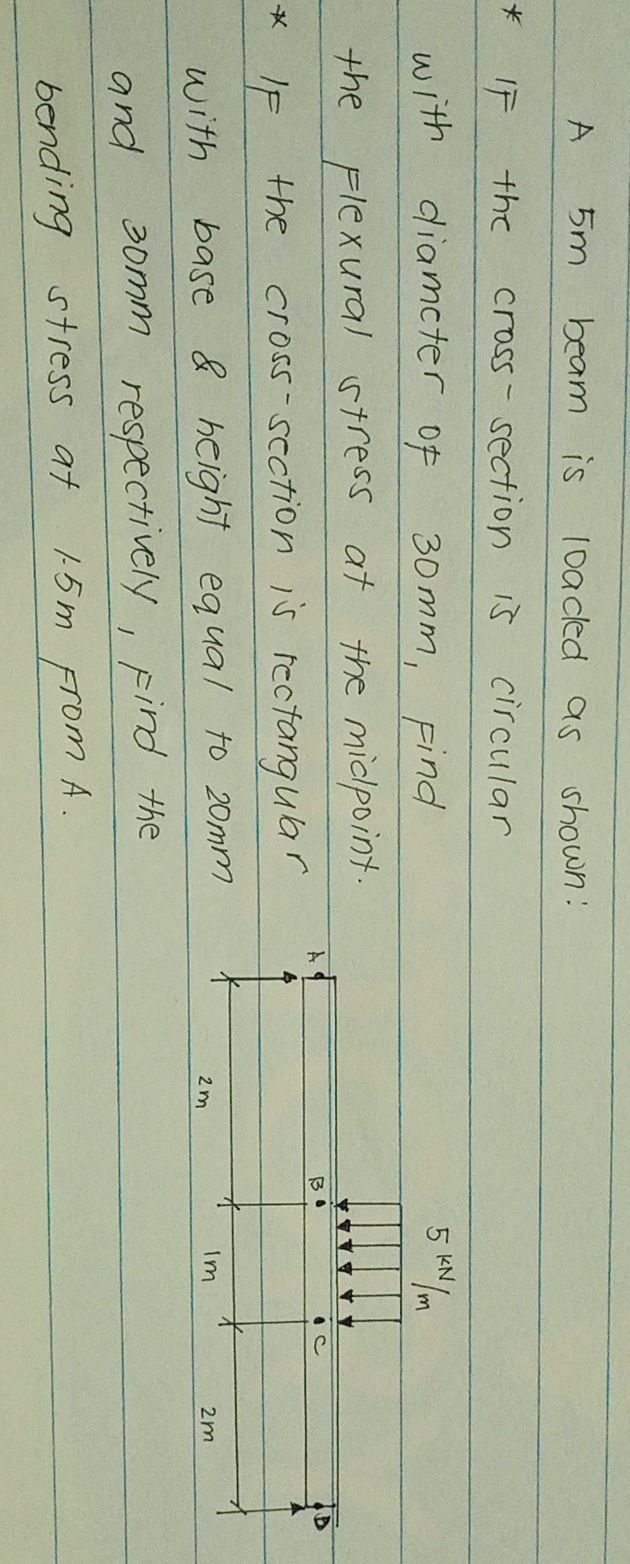 A 5m beam is loaded as shown:
* IF the cross-section is circular
with diameter of 30mm, Find
the Flexural stress at the midpoint.
* IF the cross-section is rectangular
with base & height equal to 20mm
and 30mm respectively, Find the
bending stress at 1.5m From A.
5 kN/m
A B C D
2m 1m 2m